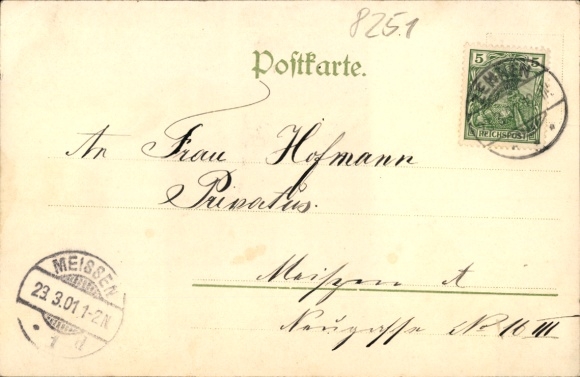 8251
Postkarte.
5 5
REICHSPOST
An Frau Hofmann
Privatus.
Meißen A
Neugasse No 16 III
MEISSEN
23.3.01.1-2N.
1 d